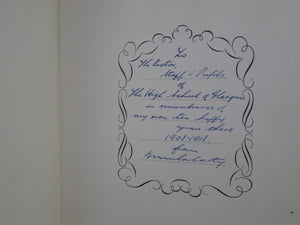 To
The Rector,
Staff & Pupils
of
The High School of Glasgow
in remembrance of
my own ten happy
years there
from